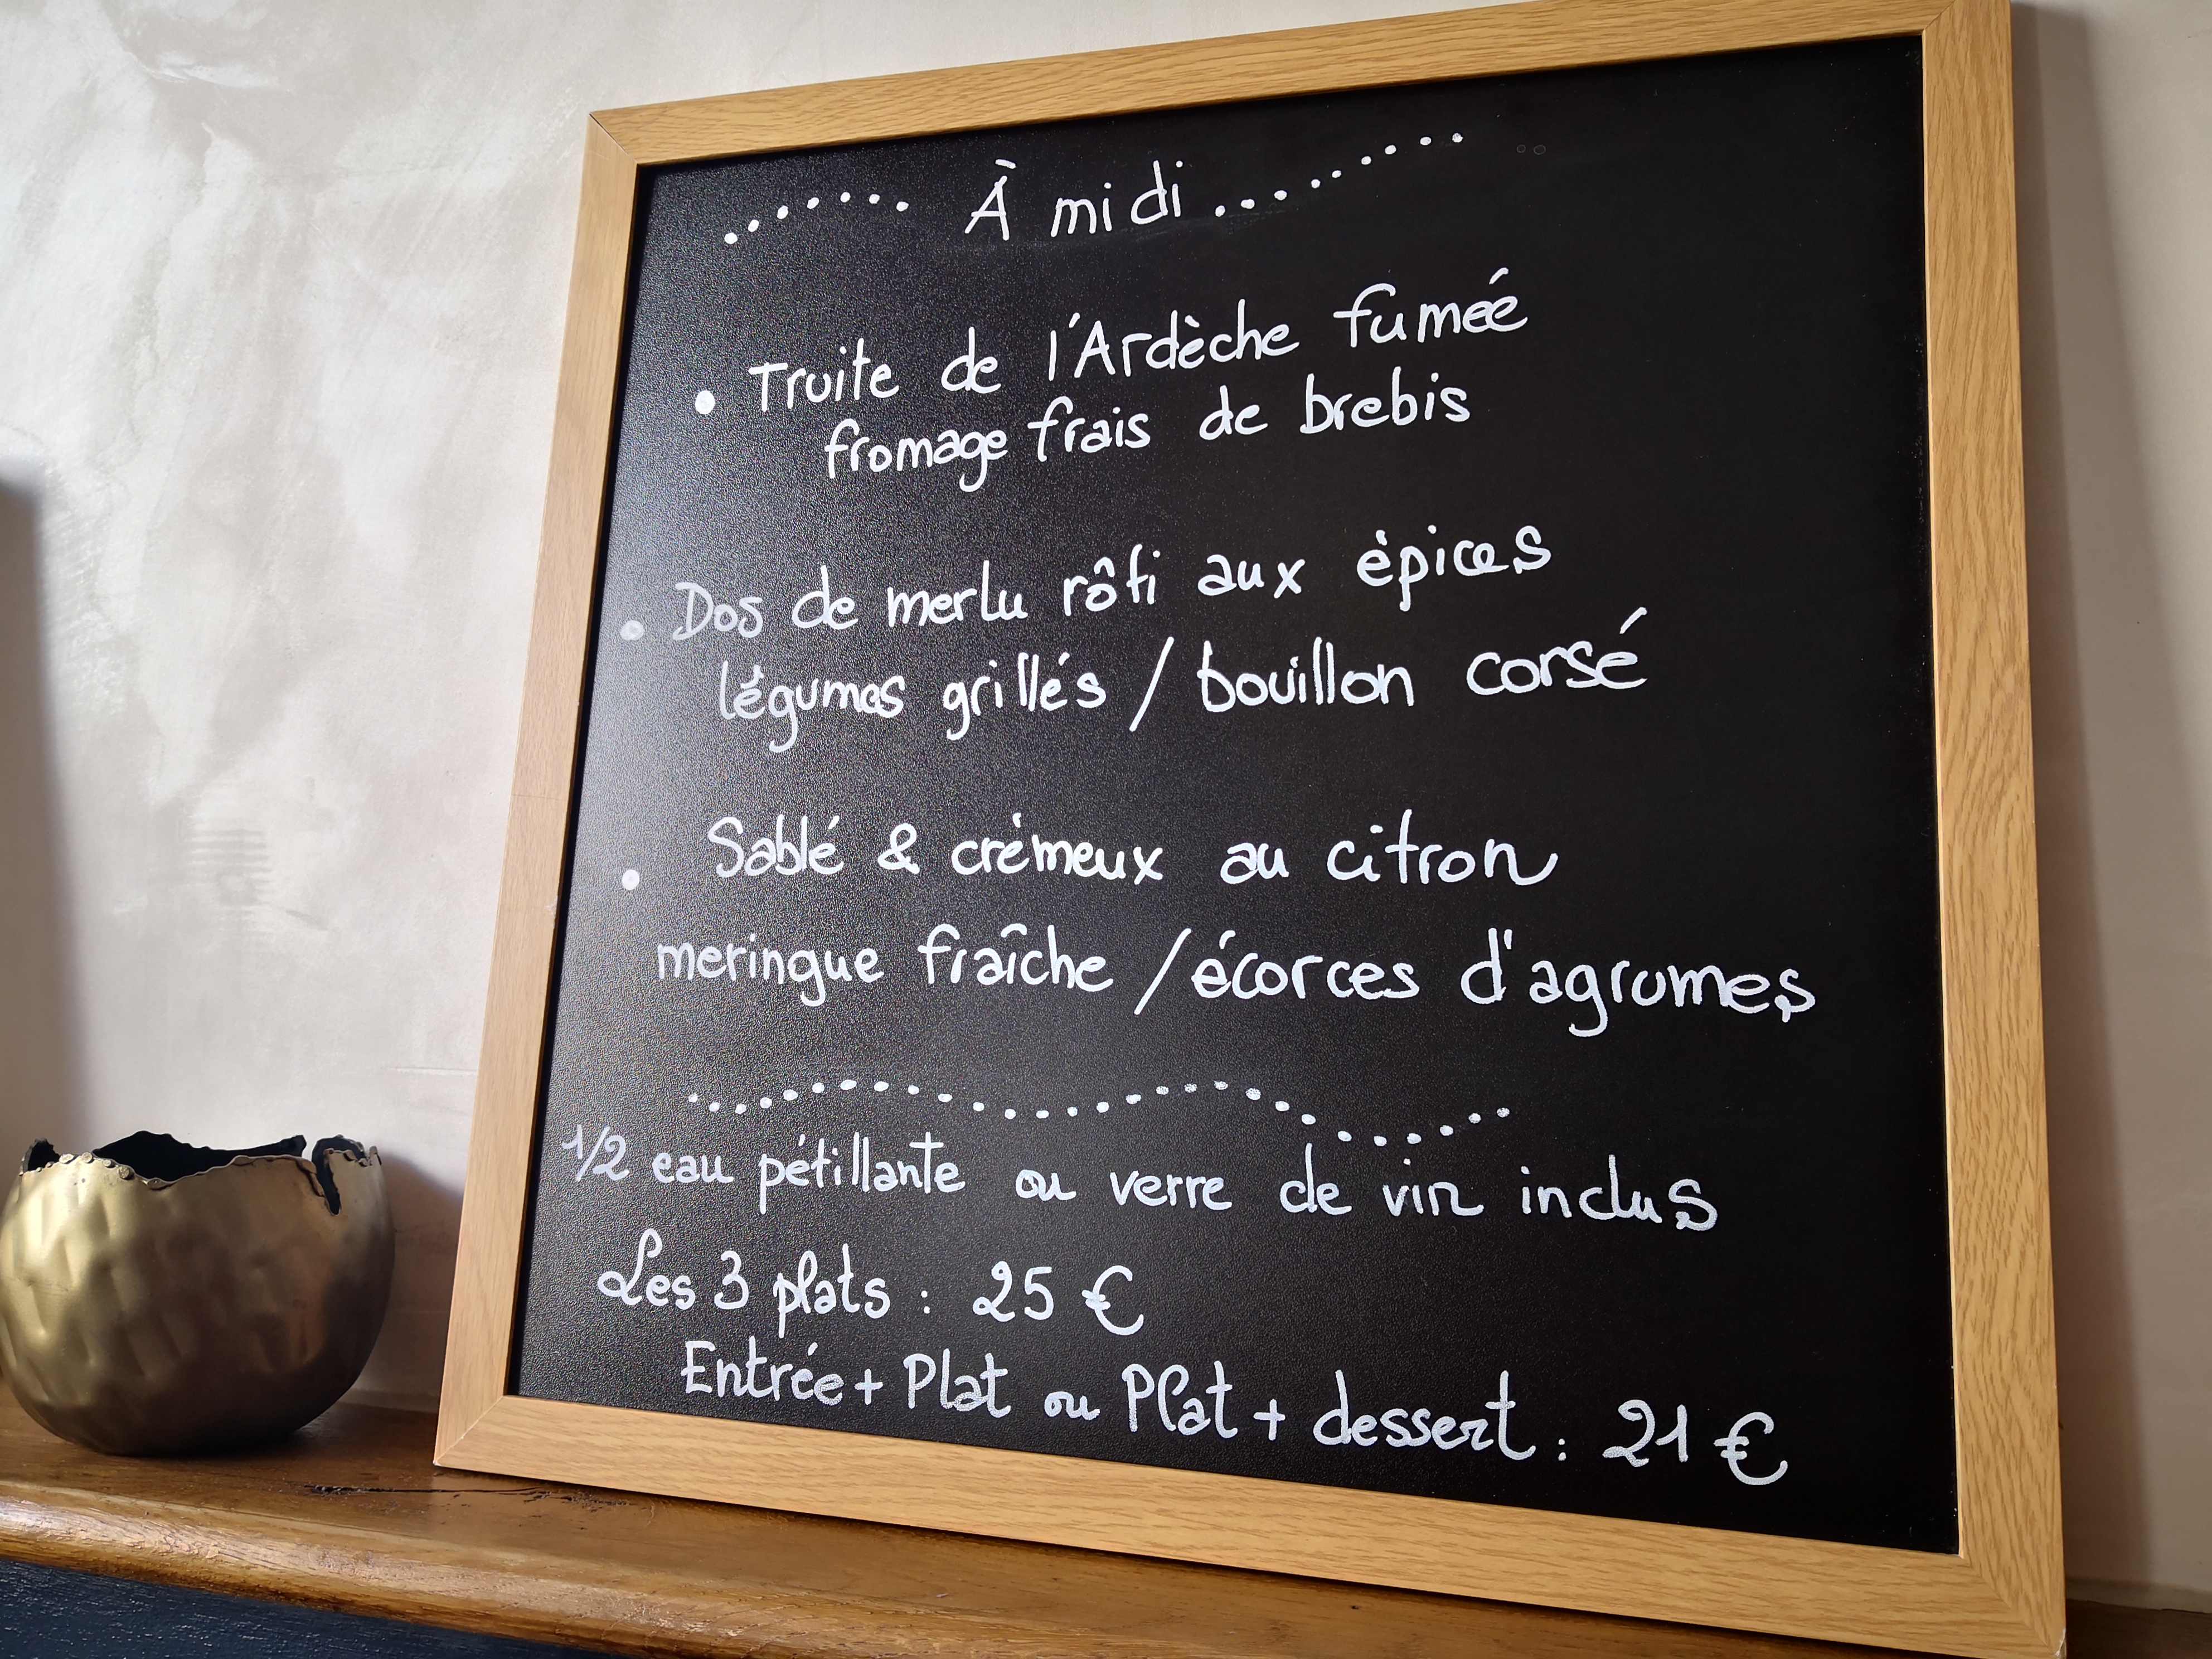 À midi
• Truite de l'Ardèche fumée
fromage frais de brebis
• Dos de merlu rôti aux épices
légumes grillés / bouillon corsé
• Sablé & crémeux au citron
meringue fraîche / écorces d'agrumes
1/2 eau pétillante ou verre de vin inclus
Les 3 plats : 25 €
Entrée + Plat ou Plat + dessert : 21 €